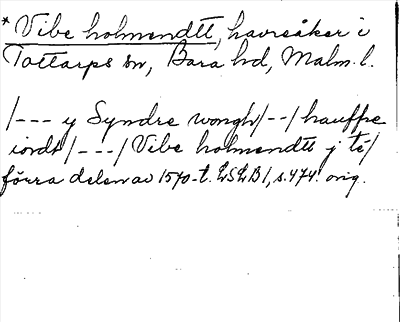 * Vibe holmendtt, havreåker i
Tottarps sn, Bara hd, Malm. l.
/--- y Syndre wongh/--/hauffre
iordt/---/Vibe holmendtt j te/
förra delen av 1570-t. LSLB 1, s. 474. orig.